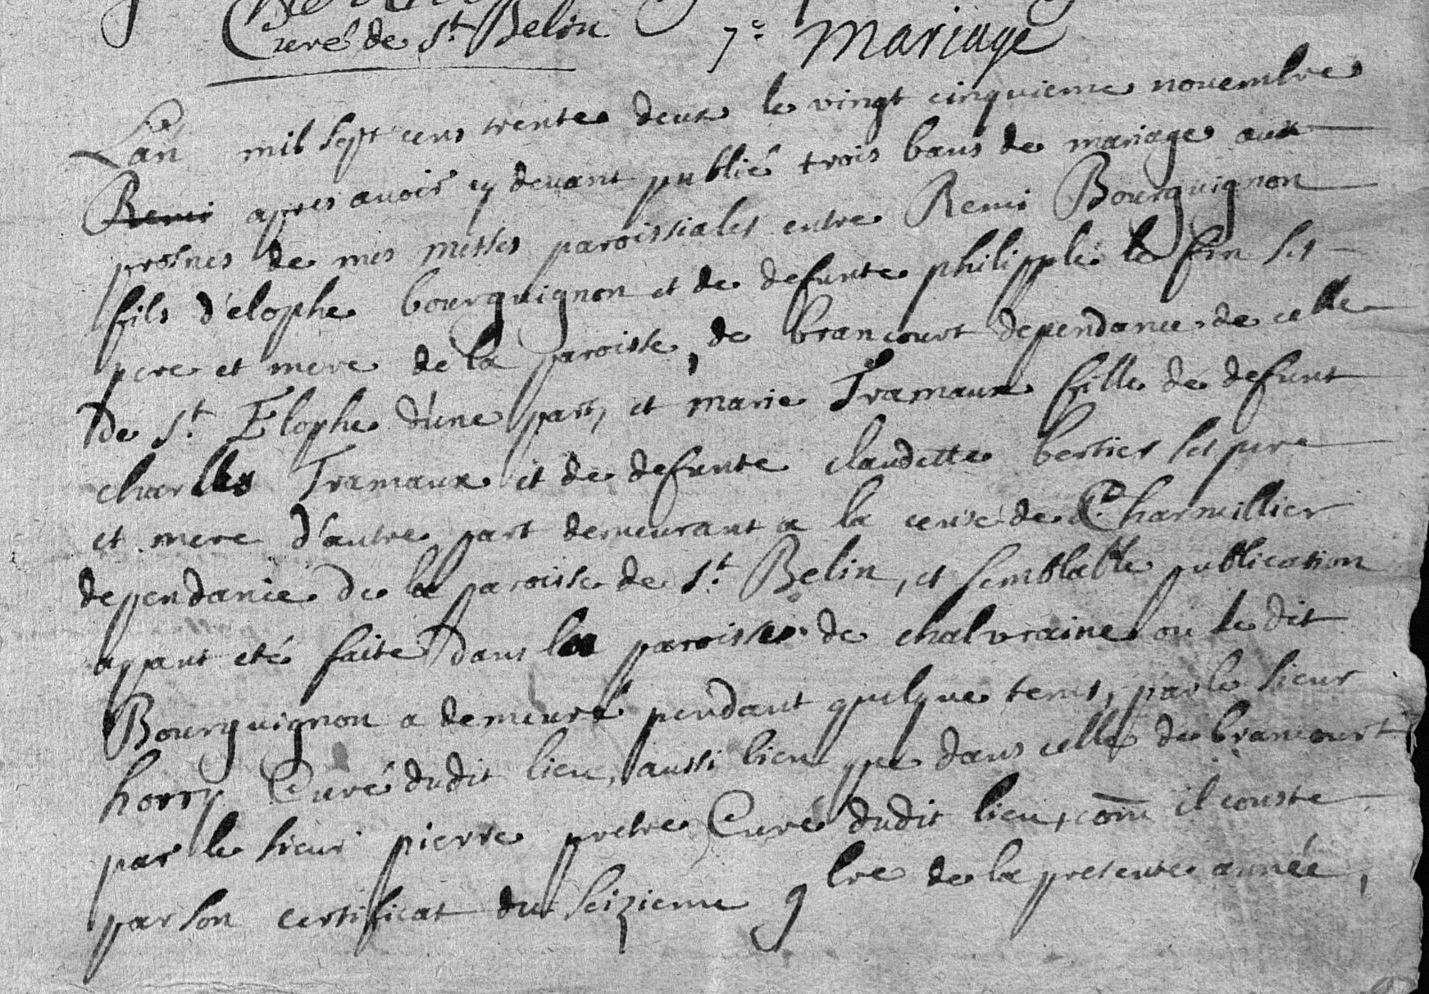 Curé de St Belin 7e mariage
L'an mil sept cens trente deux le vingt cinquieme novembre
Remi apres avoir cy devant publié trois bans de mariage aux
prosnes de mes messes paroissiales entre Remi Bourguignon
fils d'élophe bourguignon et de defunte philippe le fin ses
pere et mere de la paroisse, de brancourt dependance de celle
De St Elophe d'une part, et marie Tramaux fille de defunt
charles Tramaux et de defunte claudette bertier ses pere
et mere d'autre part demeurant a la cense de Charmillier
dependance de la paroisse de St Belin, et semblable publication
ayant eté faite dans la paroisse de chalvraine ou le dit
Bourguignon a demeuré pendant quelque tems, par le sieur
horry Curé dudit lieu, aussi bien que dans celle de brancourt
par le sieur pierre pretre Curé dudit lieu, com̄ il conste
par son certificat du seizieme 9bre de la presente année,